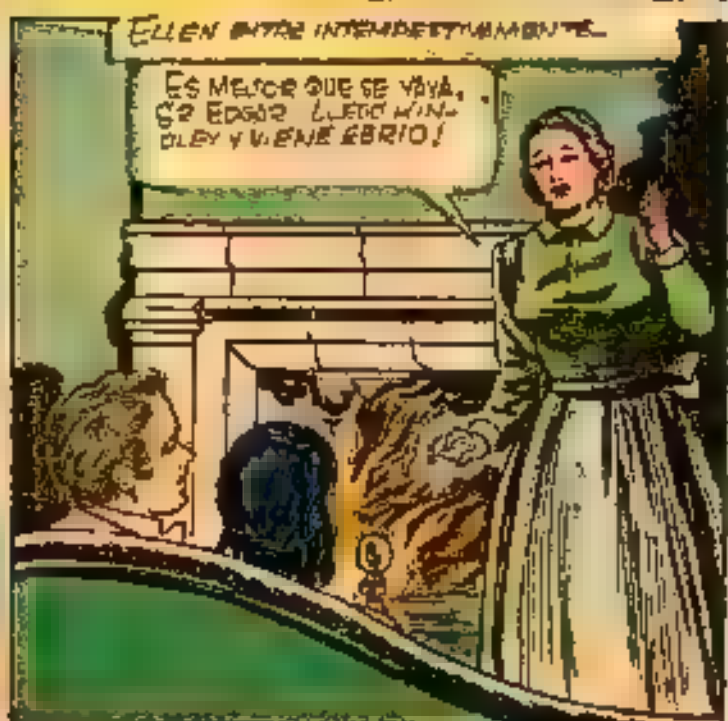 ELLEN ENTRE INTEMPESTIVAMENTE_
ES MEJOR QUE SE VAYA,
SR EDGAR LLEGO HIN-
DLEY Y VIENE EBRIO!